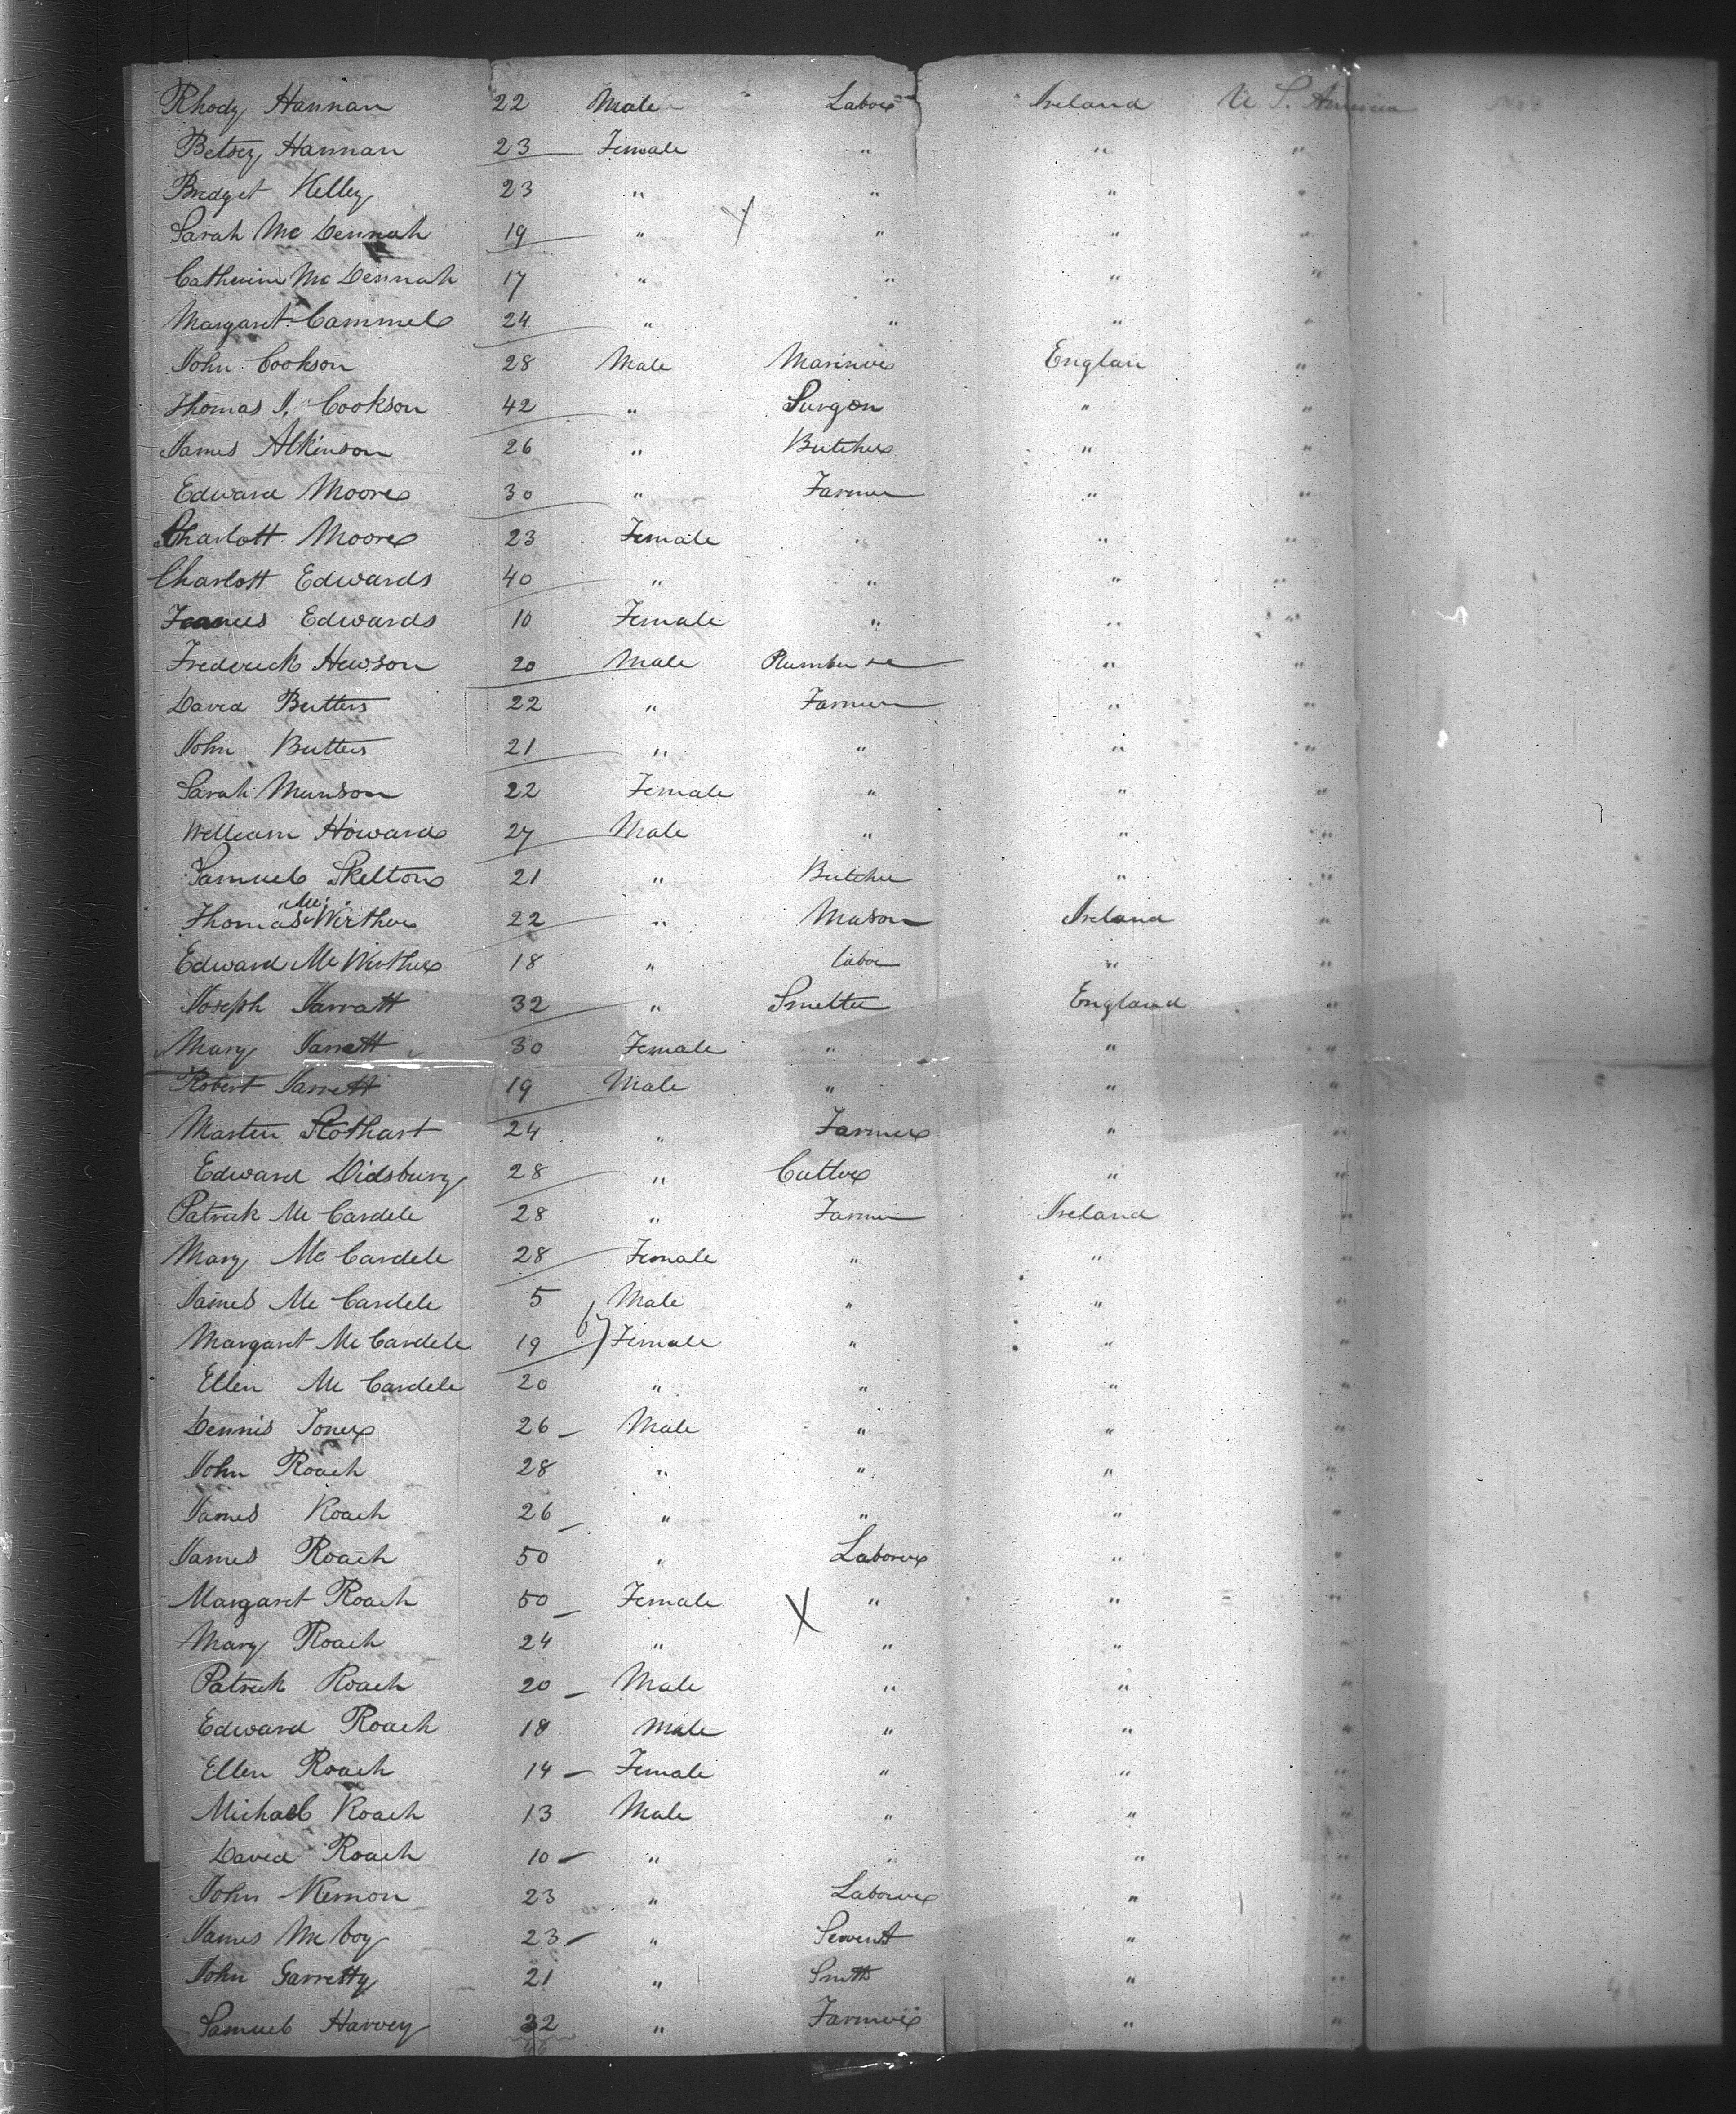 Rhody Hannan 22 Male Labor Ireland U S. America
Betsey Hannan 23 Female " " "
Bridget Kelley 23 " " " "
Sarah Mc Dennah 19 " " " "
Catherine Mc Dennah 17 " " " "
Margaret Cammel 24 " " " "
John Cookson 28 Male Mariner Englan "
Thomas J. Cookson 42 " Surgon " "
James Atkinson 26 " Butcher " "
Edward Moore 30 " Farmer " "
Charlott Moore 23 Female " " "
Charlott Edwards 40 " " " "
Frances Edwards 10 Female " " "
Frederick Hewson 20 Male Plumber " "
David Butters 22 " Farmer " "
John Butters 21 " " " "
Sarah Munson 22 Female " " "
William Howard 27 Male " " "
Samuel Skelton 21 " Butcher " "
Thomas Mc Wirther 22 " Mason Ireland "
Edward Mc Wirther 18 " Labor " "
Joseph Jarratt 32 " Smelter England "
Mary Jarrett 30 Female " " "
Robert Jarrett 19 Male " " "
Martin Stothart 24 " Farmer " "
Edward Didsbury 28 " Cutler " "
Patrick Mc Cardele 28 " Farmer Ireland "
Mary Mc Cardele 28 Female " " "
James Mc Cardele 5 Male " " "
Margaret Mc Cardele 19 Female " " "
Ellen Mc Cardele 20 " " " "
Dennis Toner 26 Male " " "
John Roach 28 " " " "
James Roach 26 " " " "
James Roach 50 " Laborer " "
Margaret Roach 50 Female " " "
Mary Roach 24 " " " "
Patrick Roach 20 Male " " "
Edward Roach 18 Male " " "
Ellen Roach 14 Female " " "
Michael Roach 13 Male " " "
David Roach 10 " " " "
John Kernon 23 " Laborer " "
James Mc Coy 23 " Servent " "
John Garretty 21 " Smith " "
Samuel Harvey 32 " Farmer " "